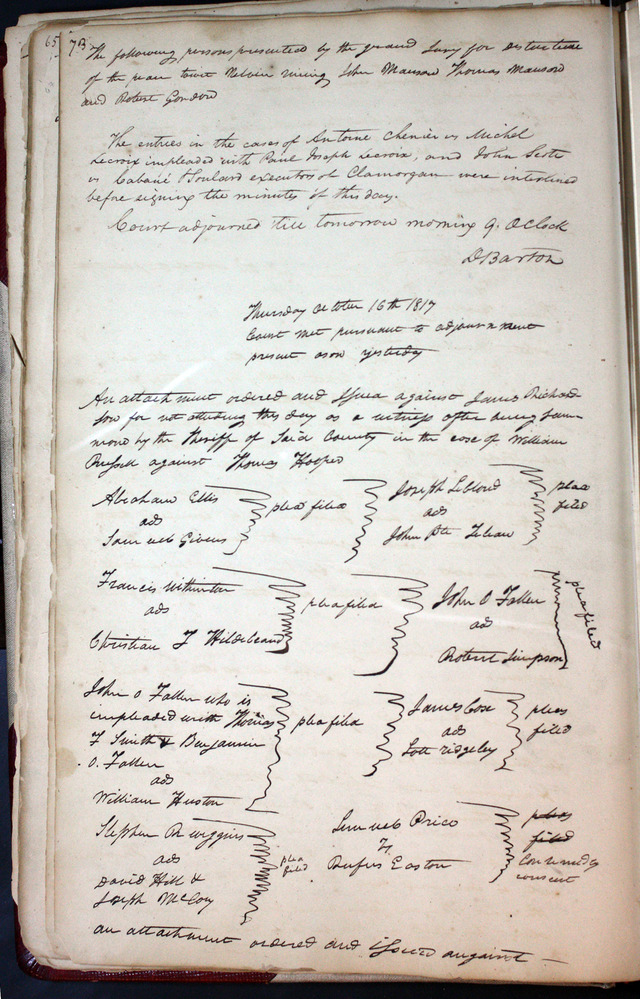 65
78
The following persons presented by the grand Jury for disturbance
of the peace towit Melvin Wining John Manson Thomas Manson
and Robert Gordon
The entries in the cases of Antoine Chenier vs Michel
Lecroix impleaded with Paul Joseph Lecroix, and John Scott
vs Cabané & Soulard executors of Clamorgan were interlined
before signing the minutes of this day.
Court adjourned till tomorrow morning 9. OClock
D Barton
Thursday October 16th 1817
Court met pursuant to adjournment
present as on yesterday
An attachment ordered and Issued against James Richard
son for not attending this day as a witness after being sum
moned by the Sheriff of Said County in the case of William
Russell against Thomas Hooper
Abraham Ellis
ads
Samuel Givens
plea filed
Joseph Leblond
ads
John Bte
plea
filed
Francis
ads
Christian F Hildebrand
plea filed
John O Fallen
ad
Robert Simpson
plea filed
John O Fallen who is
impleaded with Thomas
F Smith & Benjamin
O. Fallen
ads
William Huston
plea filed
James Cox
ads
Lott ridgeley
pleas
filed
Stephen R wiggins
ads
David Hill &
Joseph McCoy
plea
filed
Lemuel Price
vs
Rufus Easton
pleas
filed
Continued by
consent
an attachment ordered and issued against —